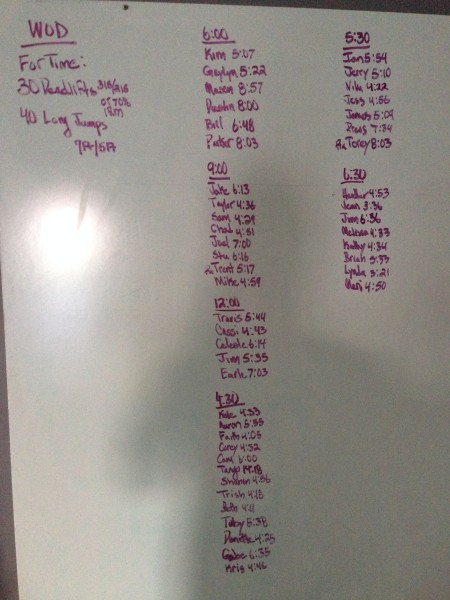 WOD
For Time:
30 Deadlifts 315/215
or 70%
1RM
40 Long Jumps
7ft/5ft
6:00
Kim 5:07
Gaylyn 5:22
Mason 8:57
Dustin 8:00
Bill 6:48
Parker 8:03
9:00
Jake 6:13
Taylor 4:36
Sam 4:29
Chad 4:51
Joel 7:00
Stu 6:16
Rx Trent 5:17
Mike 4:59
12:00
Travis 5:44
Cassi 4:43
Celeste 6:14
Jim 5:35
Earle 7:03
4:30
Kate 4:33
Aaron 5:55
Faith 4:05
Corey 4:32
Cami 6:00
Tanya 14:18
Shannon 4:56
Trish 4:18
Beth 4:11
Toby 8:38
Danielle 4:25
Gabe 6:35
Kris 4:46
5:30
Ian 5:54
Jerry 5:10
Nika 4:22
Jess 4:56
James 5:09
7:34
Rx Torey 8:03
6:30
Heather 4:53
Jean 3:36
Jvon 6:36
Melissa 4:33
Kathy 4:34
Brian 5:33
Lynda 3:21
Mari 4:50